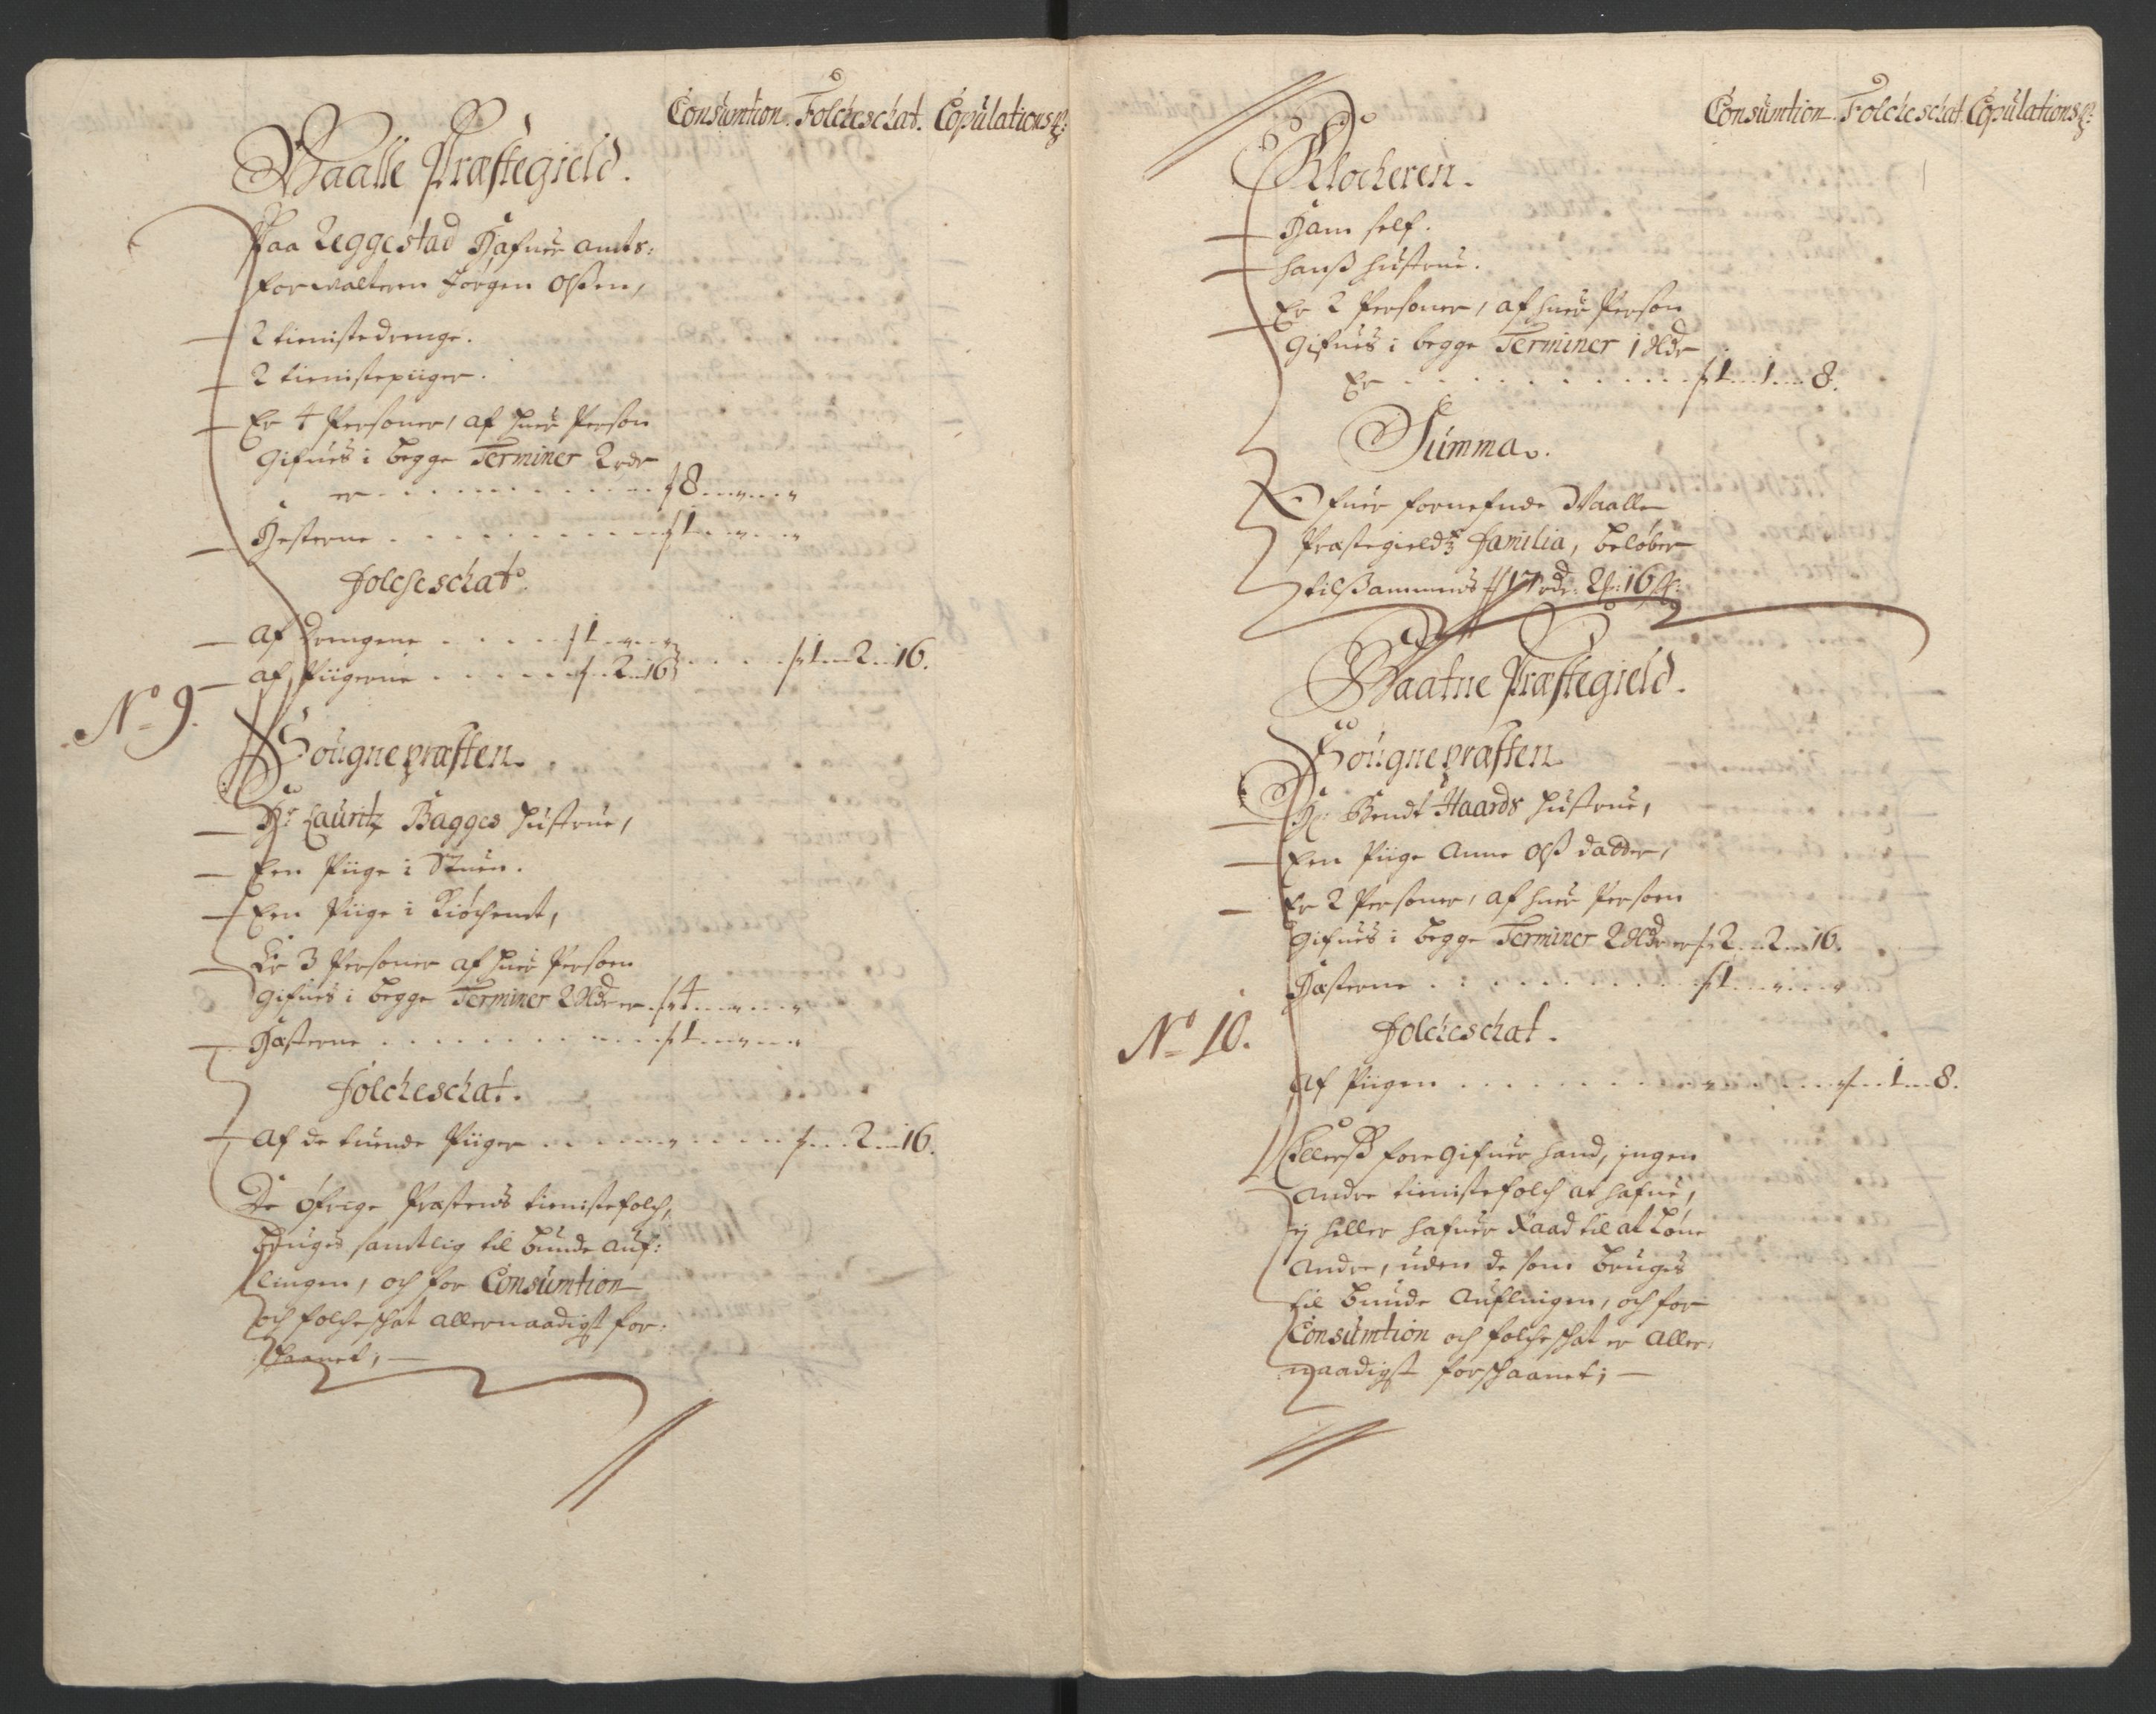 Consumtion. Folcheschat. Copulations p:
Waalle Præstegield.
Paa Reggestad Hafuer amts:
forwalteren Jørgen Olsen,
2 tienistedrenge.
2 tienistepiiger.
Er 4 Personer, af huer Person
Gifues i begge Terminer 2 rdr
er . . . . . . . . . . . 8 - " - "
Hesterne . . . . . . . . . 1 - " - "
Folcheschat.
af Drengene . . . . . 1 - " - "
af Piigerne . . . . . . - 2 - 16 . . . . 1 - 2 - 16.
No 9.
Sougnepræsten.
Hr Lauritz Bagges hustrue,
Een Piige i Stuen.
Een Piige i Kiøchenet,
Er 3 Personer af huer Persoen
Gifues i begge Terminer 2 Oldr er 4 - " - "
Hæsterne . . . . . . . . . . 1 - " - "
Folcheschat.
Af de tuende Piiger . . . . . . . . . - 2 - 16.
De øfrige Præstens tienistefolch,
bruges samtlig til bunde auf:
lingen, och for Consumtion
och folcheschat allernaadigst for:
schaanet, —
Consumtion. Folcheschat. Copulations p:
Klocheren.
Ham self.
hanß hustrue.
Er 2 Personer, af huer Person
Gifues i begge Terminer 1 Oldr
Er . . . . . . . . . . . . 1 - 1 - 8.
Summa.
Ofuer fornefnde Waalle
Præstegieldz Familia, beløber
tilsammens 17 rdr. 2 16
Waatne Præstegield.
Sougnepræsten
Hr. Bendt Haards hustrue,
Een Piige Anne Olß dadder,
Er 2 Personer, af huer Persoen
Gifues i begge Terminer 2 Oldr er 2 - 2 - 16.
Hæsterne . . . . . . . . . . 1 - " - "
No 10.
Folcheschat.
Af Piigen . . . . . . . . . . . . - 1 - 8.
Ellerß foregifuer hand, ingen
andre tienistefolch at hafue,
ej heller hafuer Raad til at løne
andre, uden de som bruges
til bunde auflingen, och for
Consumtion och folcheschat er aller:
naadigst forschaanet; —